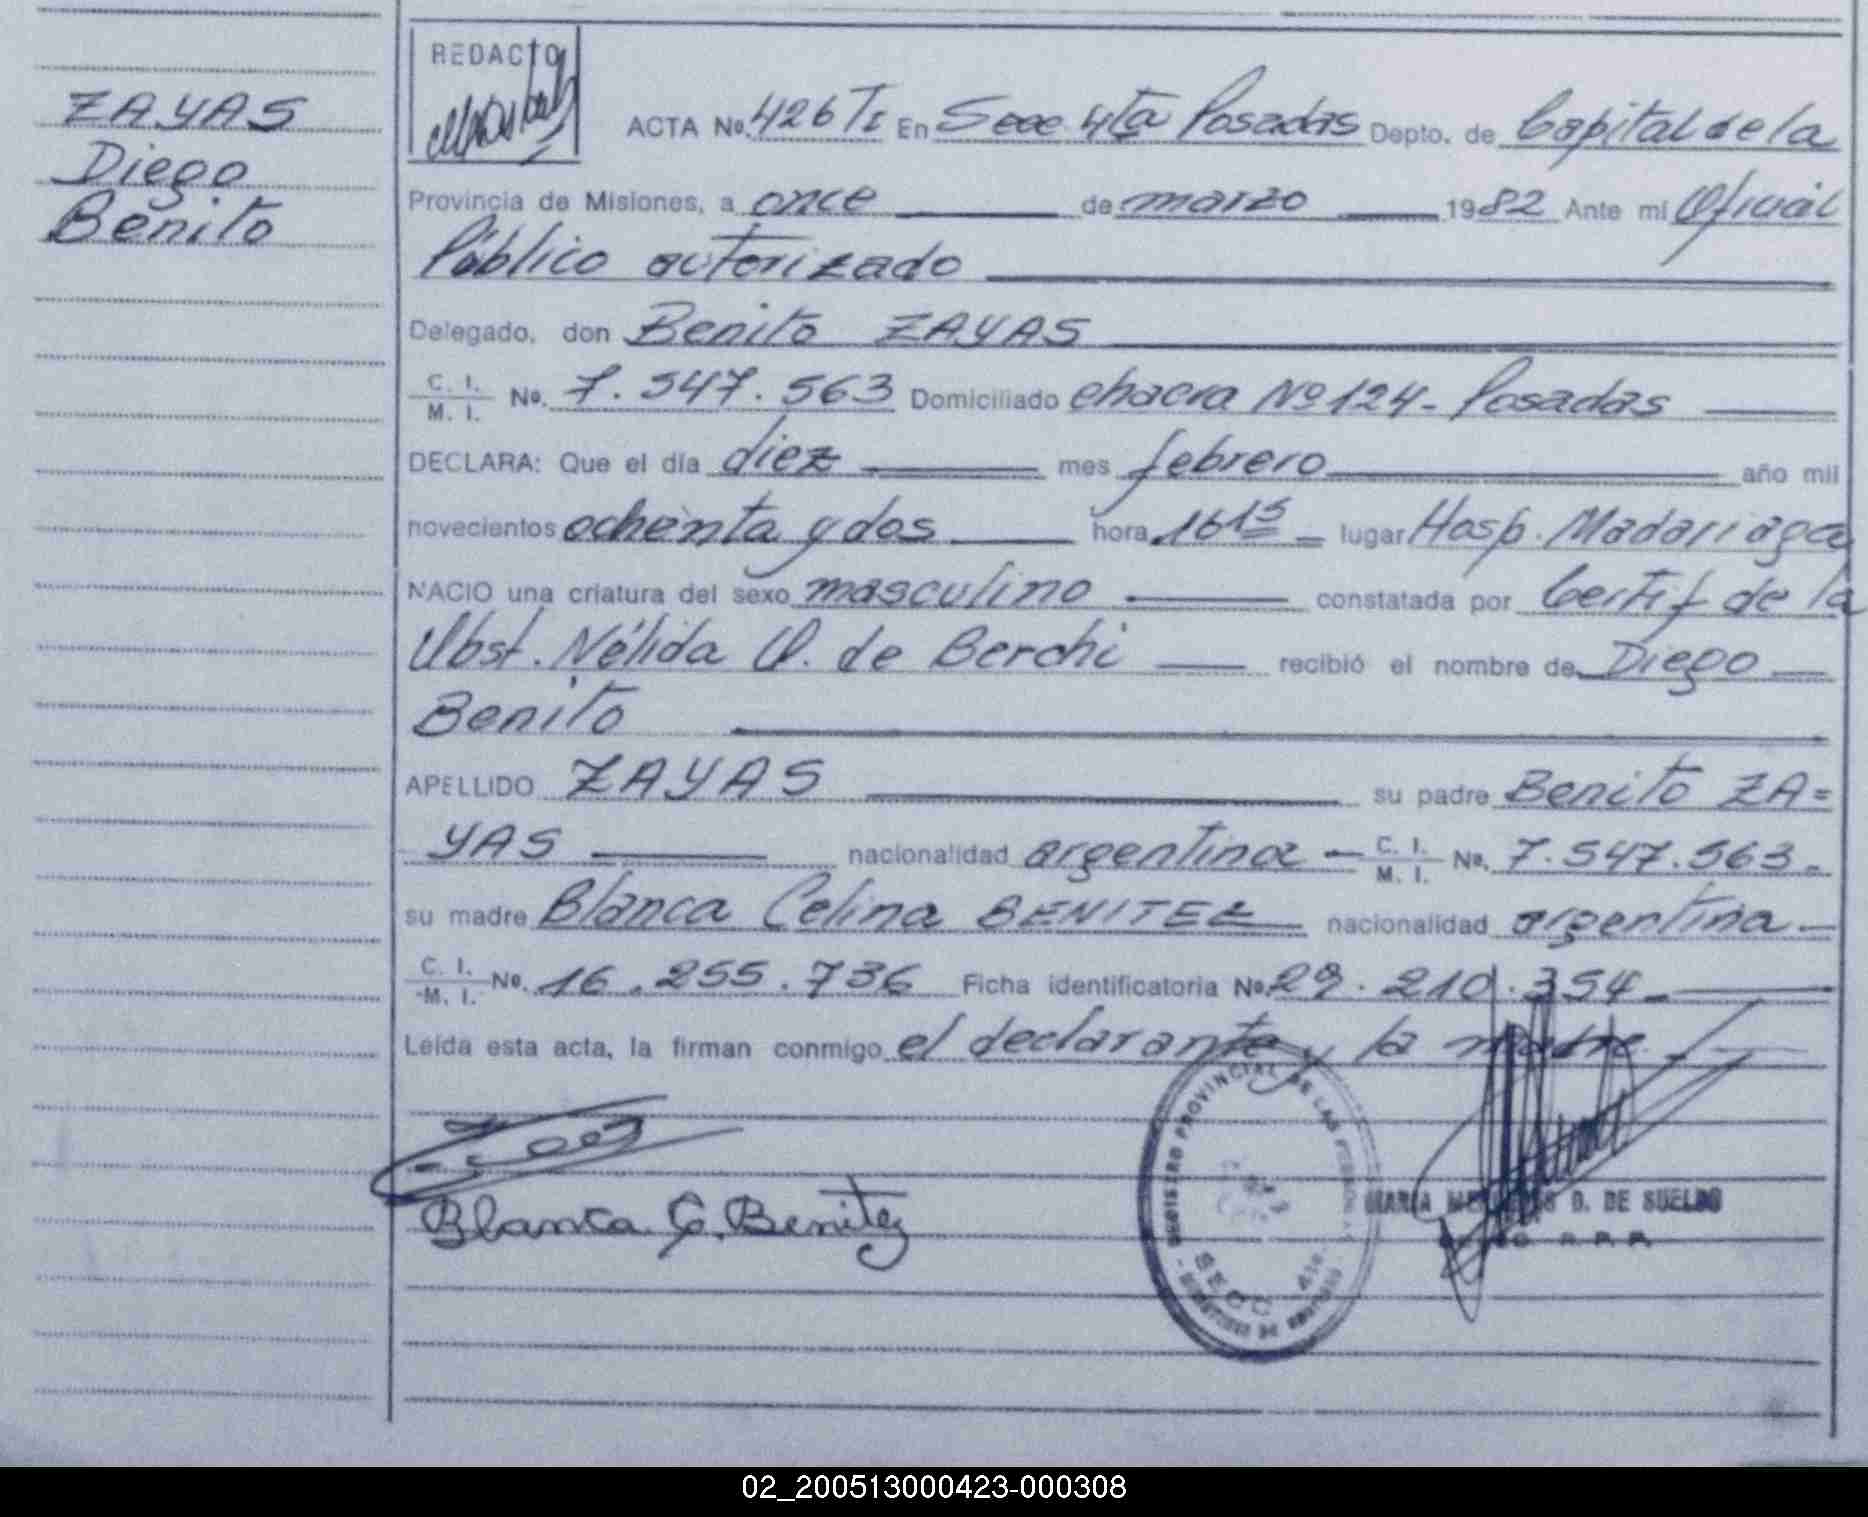 ZAYAS
Diego
Benito
REDACTO
ACTA No. 426 TI En Secc 4ta Posadas Depto. de Capital de la
Provincia de Misiones, a once de marzo 1982 Ante mi Oficial
Público autorizado
Delegado, don Benito ZAYAS
C. I. / M. I. No. 7.547.563 Domiciliado chacra Nº 124- Posadas
DECLARA: Que el día diez mes febrero año mil
novecientos ochenta y dos hora 16 15 lugar Hosp. Madariaga
NACIO una criatura del sexo masculino constatada por Certif de la
Obst. Nélida O. de Berchi recibió el nombre de Diego
Benito
APELLIDO ZAYAS su padre Benito ZA=
YAS nacionalidad argentina - C. I. / M. I. No. 7.547.563-
su madre Blanca Celina BENITEZ nacionalidad argentina -
C. I. / M. I. No. 16.255.736 Ficha identificatoria No. 29.210.354-
Leída esta acta, la firman conmigo el declarante y la madre
Blanca C. Benitez
REGISTRO PROVINCIAL DE LAS PERSONAS
SECC. 4ta
MARIA D. DE SUELDO
R. P. P.
02_200513000423-000308